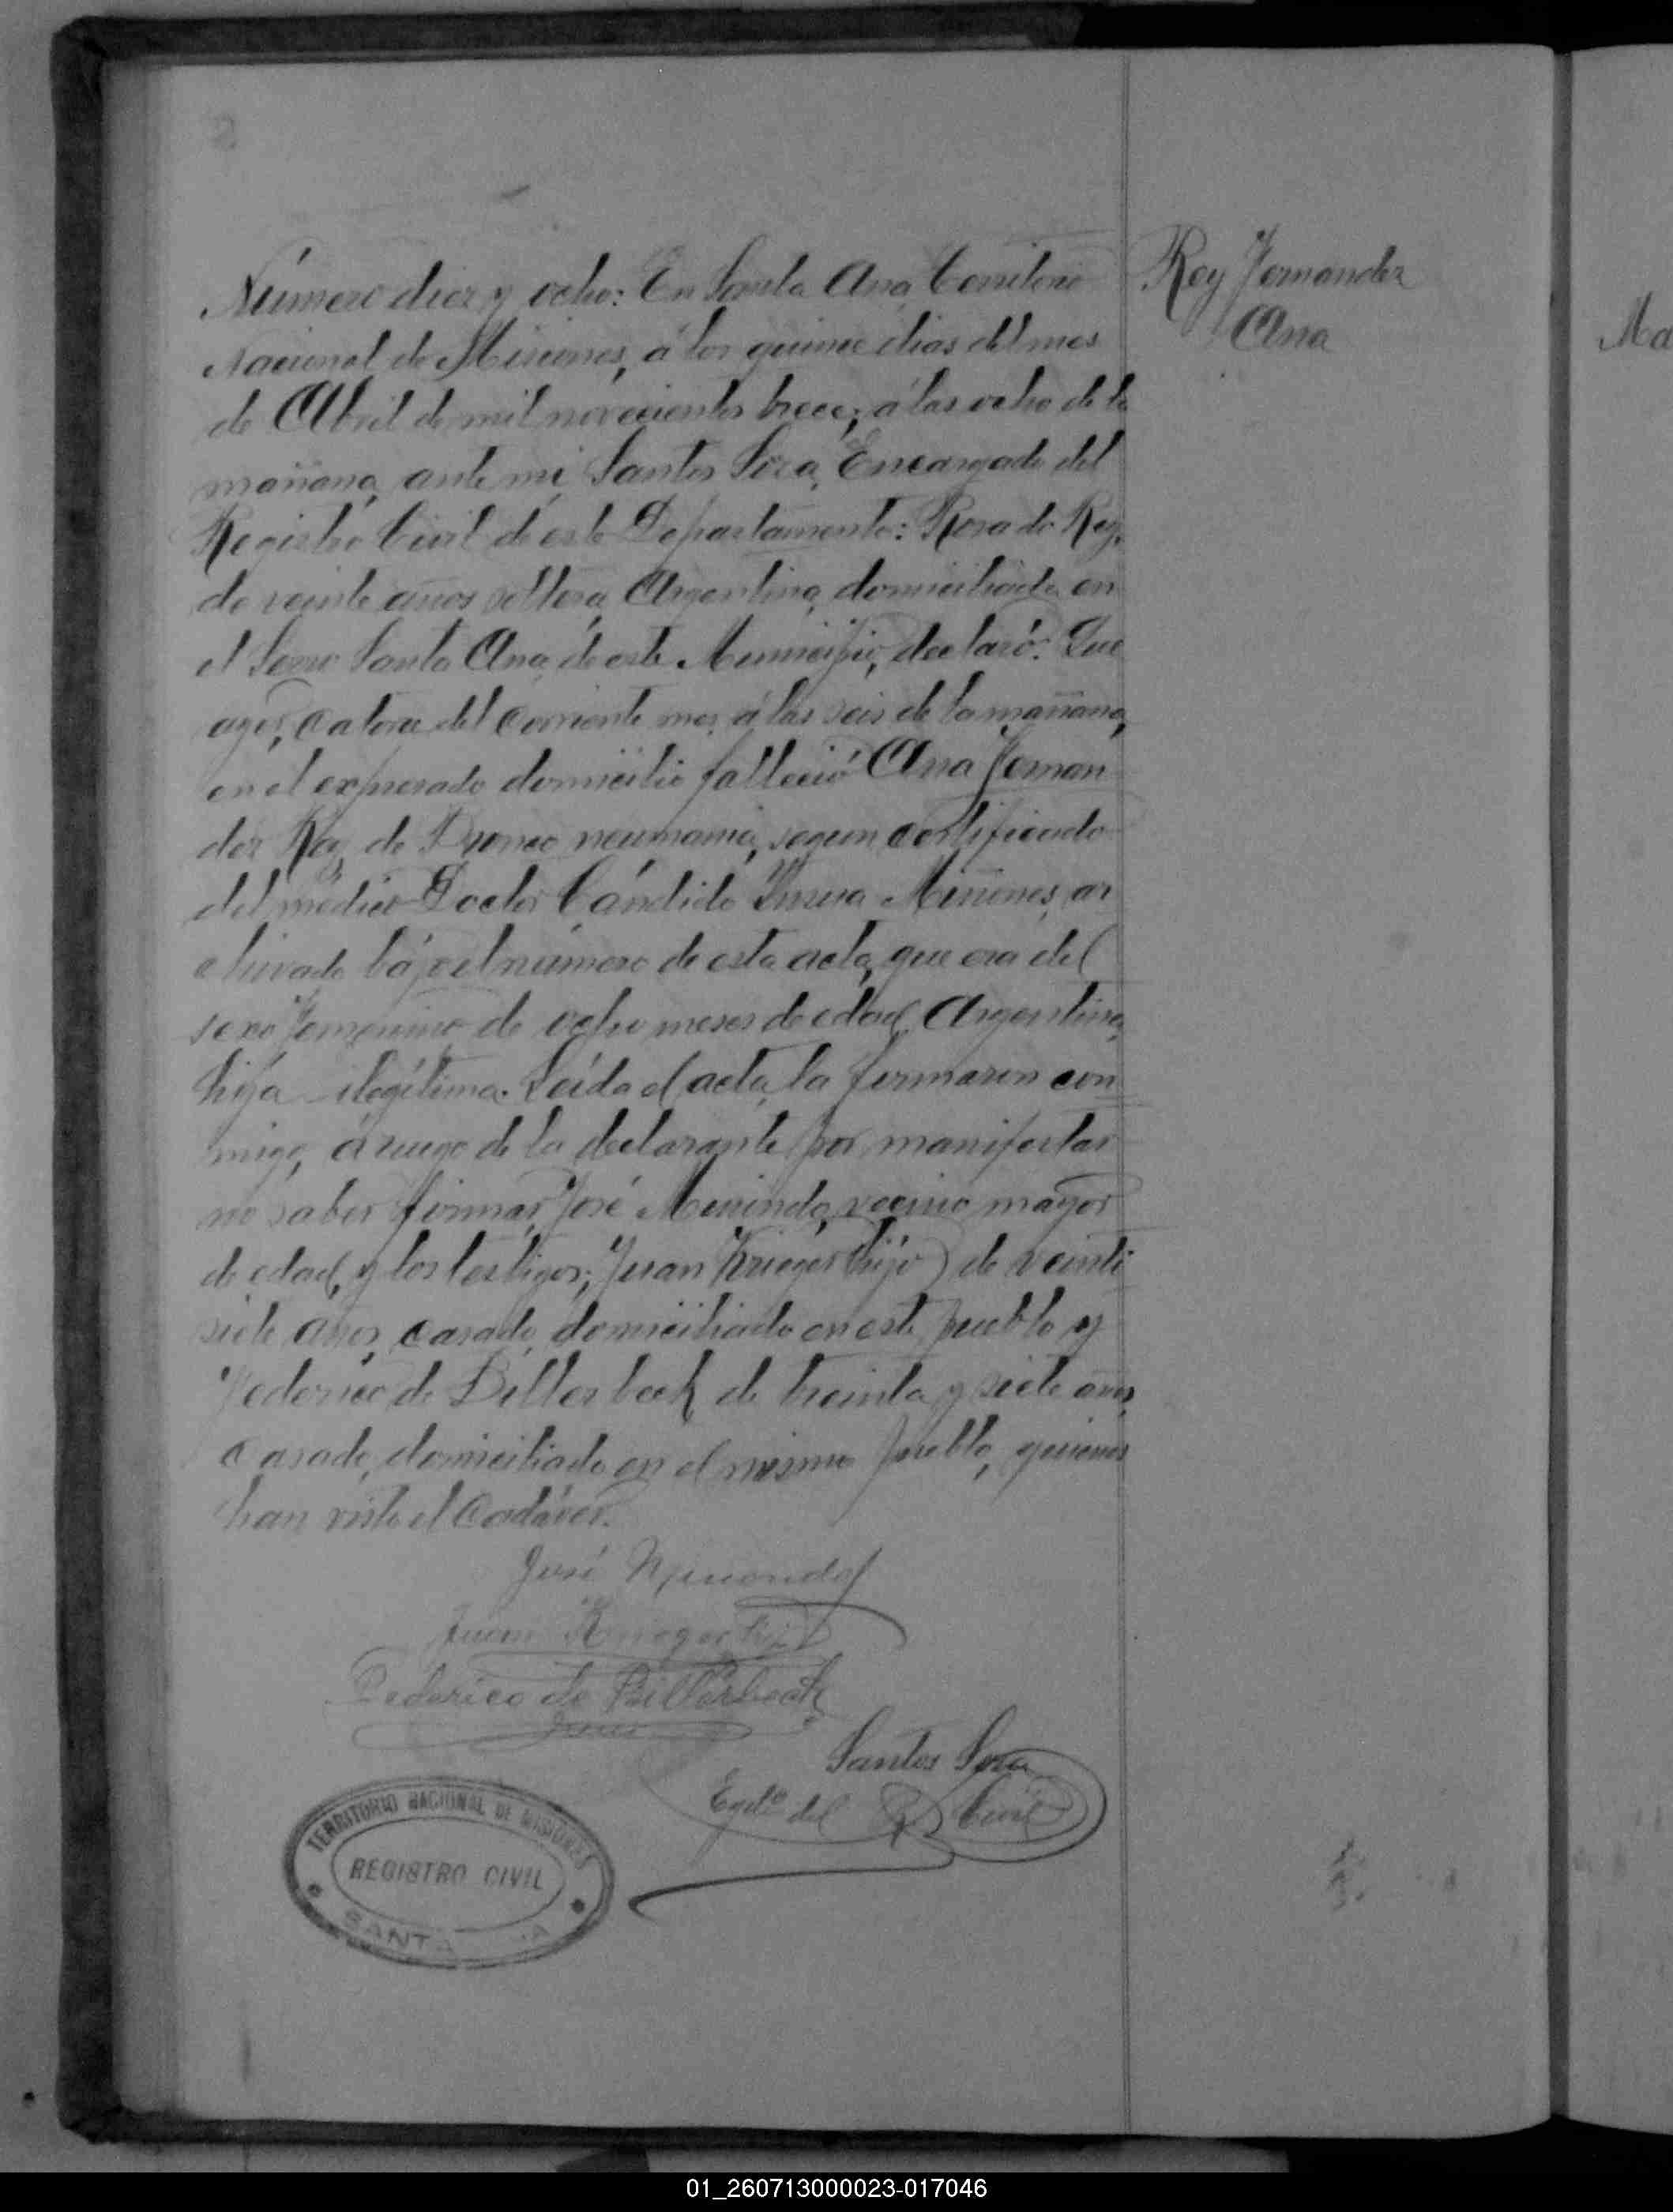 Rey Fernandez
Ana
Ma
Número diez y ocho: En Santa Ana, Territorio
Nacional de Misiones, á los quince dias del mes
de Abril de mil novecientos trece, á las ocho de la
mañana, ante mi Santos Encargado del
Registro Civil de este Departamento: Rosa de Rey,
de veinte años soltera, Argentina, domiciliada en
el Santa Ana, de este Municipio, declaró: Que
ayer, catorce del corriente mes, á las seis de la mañana,
en el expresado domicilio falleció Ana Fernan
dez Rey, de neumonia, segun certificado
del médico Doctor Cándido ar
chivado bájo el número de esta acta, que era del
sexo femenino de ocho meses de edad, Argentina,
hija ilegítima. Leída el acta, la firmaron con
migo, á ruego de la declarante por manifestar
no saber firmar, José vecino mayor
de edad, y los testigos; Juan Krieger (hijo) de veinti
siete años, casado, domiciliado en este pueblo y
Federico de Billerbeck de treinta y siete años,
casado, domiciliado en el mismo pueblo, quienes
han visto el cadáver.
José
Juan Krieger hijo
Federico de Billerbeck
Santos
Egdo del R Civil
TERRITORIO NACIONAL DE MISIONES
REGISTRO CIVIL
SANTA A
01_260713000023-017046